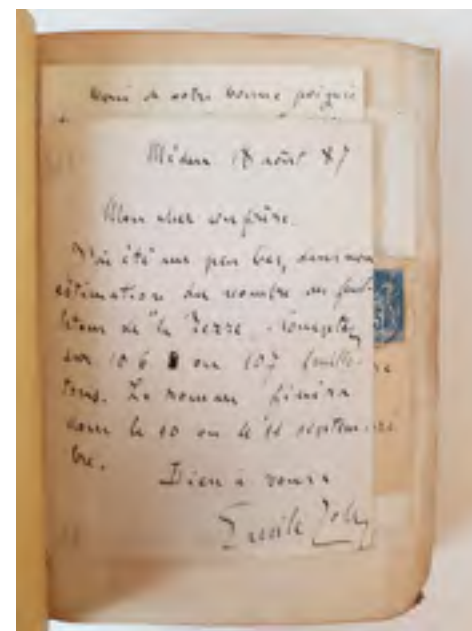 Merci de votre bonne poignée
Médan 18 août 87
Mon cher confrère.
J'ai été un peu bas, dans mon
estimation du nombre de feuil-
letons de la Terre. Comptez
sur 106 ou 107 feuille-
tons. Le roman finira
donc le 10 ou le 11 septem-
bre.
Bien à vous
Emile Zola